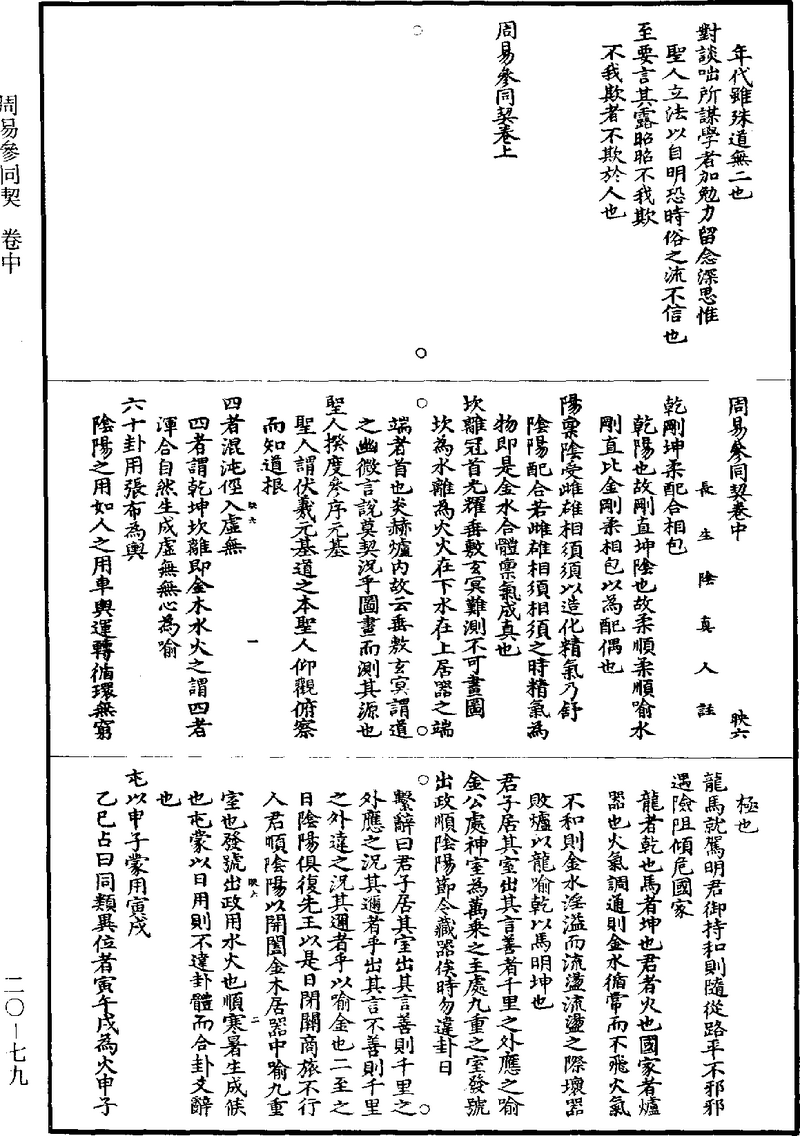 周易參同契 卷中
二〇—七九
年代雖殊道無二也
對談咄所謀學者加勉力留念深思惟
聖人立法以自明恐時俗之流不信也
至要言其露昭昭不我欺
不我欺者不欺於人也
周易參同契卷上
周易參同契卷中
映六
長生陰真人註
乾剛坤柔配合相包
乾陽也故剛直坤陰也故柔順柔順喻水
剛直比金剛柔相包以為配偶也
陽稟陰受雌雄相須須以造化精氣乃舒
陰陽配合若雌雄相須相須之時精氣為
物即是金水合體稟氣成真也
坎離冠首光耀垂敷玄冥難測不可畫圖
坎為水離為火火在下水在上居器之端
端者首也炎赫爐內故云垂敷玄冥謂道
之幽微言說莫契況乎圖畫而測其源也
聖人揆度參序元基
聖人謂伏羲元基道之本聖人仰觀俯察
而知道根
映六
一
四者混沌徑入虛無
四者謂乾坤坎離即金木水火之謂四者
渾合自然生成虛無無心為喻
六十卦用張布為輿
陰陽之用如人之用車輿運轉循環無窮
極也
龍馬就駕明君御持和則隨從路平不邪邪
遇險阻傾危國家
龍者乾也馬者坤也君者火也國家者爐
器也火氣調通則金水循常而不飛火氣
不和則金水淫溢而流盪流盪之際壞器
敗爐以龍喻乾以馬明坤也
君子居其室出其言善者千里之外應之喻
金公處神室為萬乘之主處九重之室發號
出政順陰陽節令藏器俟時勿違卦日
繫辭曰君子居其室出其言善則千里之
外應之況其邇者乎出其言不善則千里
之外違之況其邇者乎以喻金也二至之
日陰陽俱復先王以是日閉關商旅不行
人君順陰陽以開闔金木居器中喻九重
映六
二
室也發號出政用水火也順寒暑生成候
也屯蒙以日用則不違卦體而合卦爻辭
也
屯以申子蒙用寅戌
乙巳占曰同類異位者寅午戌為火申子